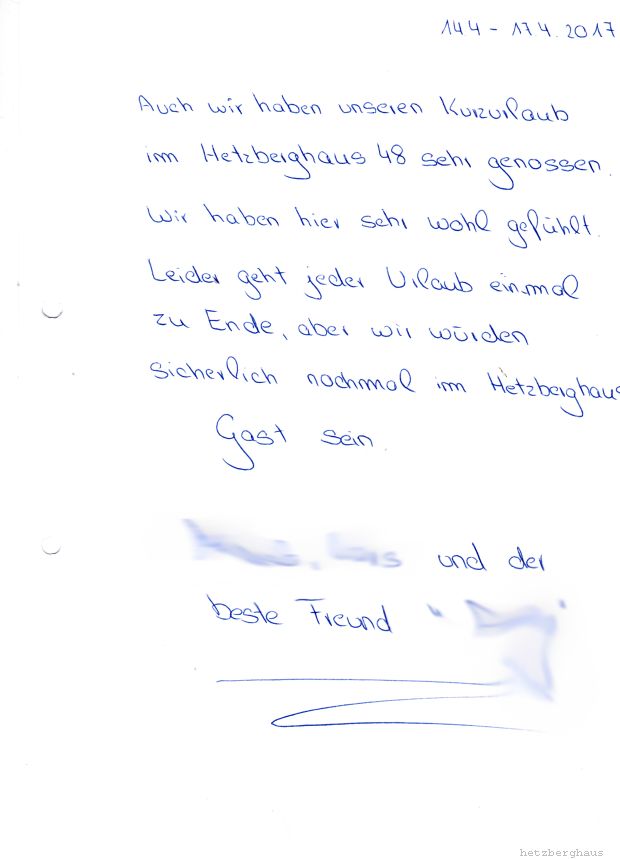 14.4 - 17.4.2017
Auch wir haben unseren Kurzurlaub
im Hetzberghaus 48 sehr genossen.
Wir haben hier sehr wohl gefühlt.
Leider geht jeder Urlaub einmal
zu Ende, aber wir würden
sicherlich nochmal im Hetzberghaus
Gast sein.
und der
beste Freund "
hetzberghaus